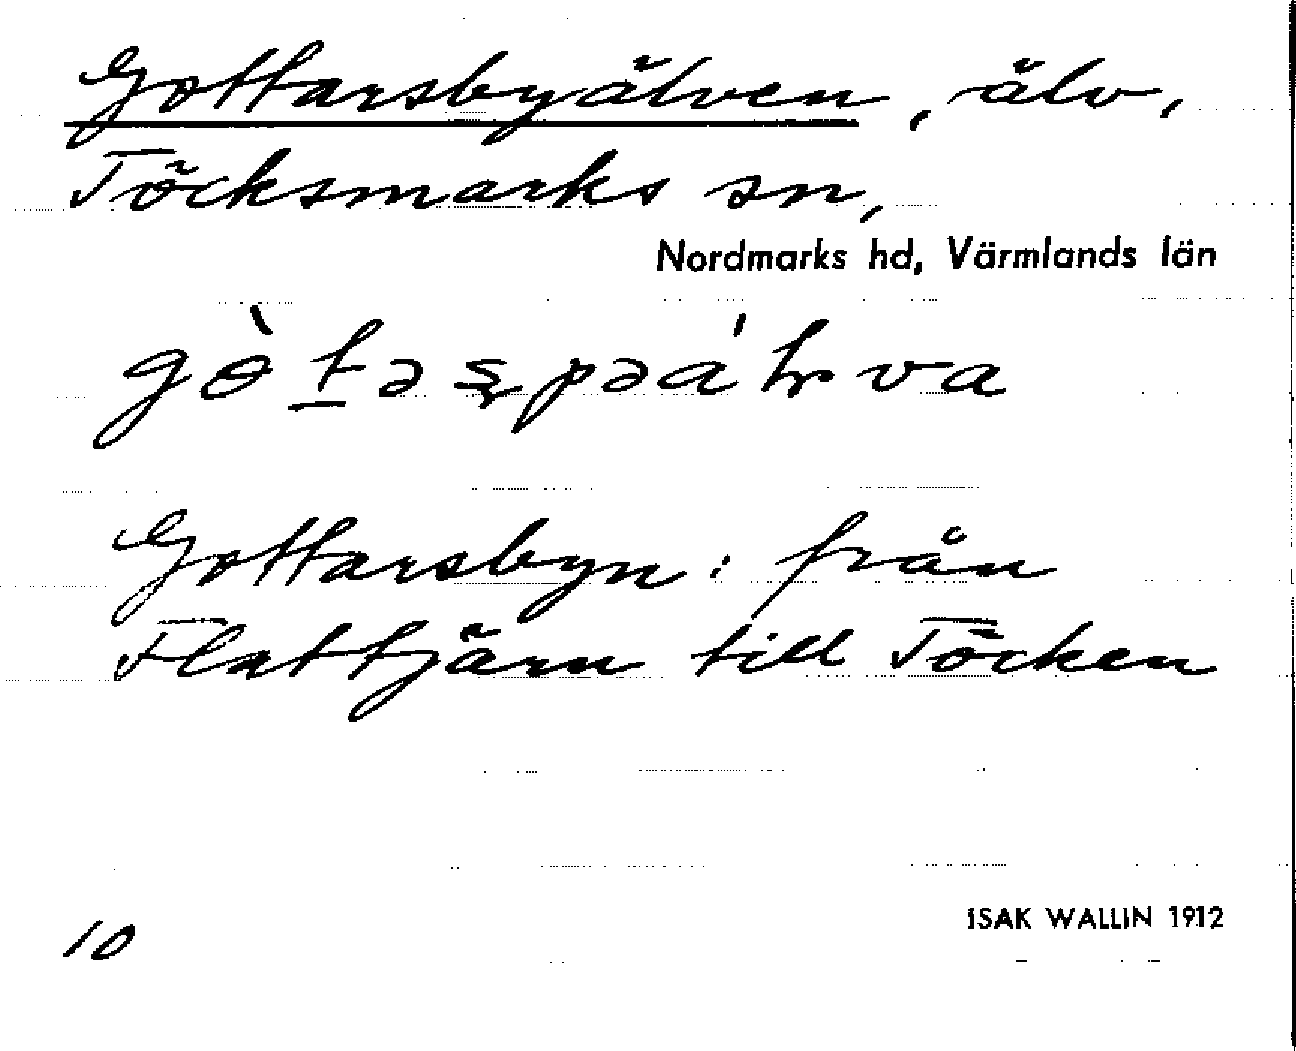 Gottarsbyälven, älv,
Töcksmarks sn,
Nordmarks hd, Värmlands län
Gottarsbyn: från
Flattjärn till Töcken
10
ISAK WALLIN 1912